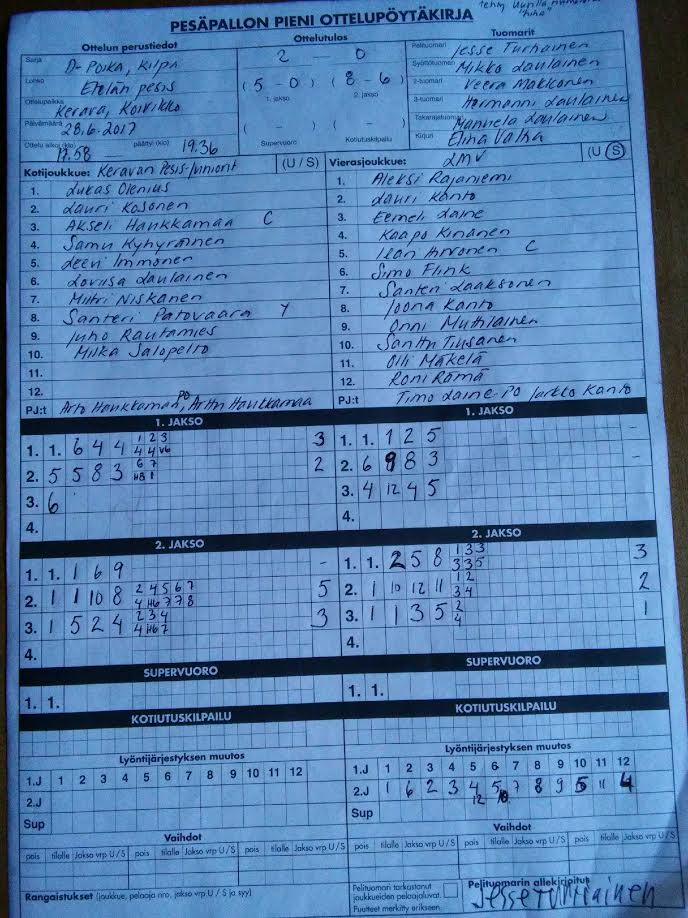 PESÄPALLON PIENI OTTELUPÖYTÄKIRJA
Ottelun perustiedot
Sarja D-Poika, Kilpa
Lohko Etelän pesis
Ottelupaikka Kerava, Koivikko
Päivämäärä 28.6.2017
Ottelu alkoi (klo) 17.58 päättyi (klo) 19.36
Ottelutulos
2 - 0
( 5 - 0 ) ( 8 - 6 )
1. jakso 2. jakso
( - ) ( - )
Supervuoro Kotiutuskilpailu
Tuomarit
Pelituomari Jesse Turhainen
Syöttötuomari Mikko Laulainen
2-tuomari Veera Makkonen
3-tuomari Hermanni Laulainen
Takarajatuomari Mannela Laulainen
Kirjuri Elina Valha
Kotijoukkue: Keravan Pesis-Juniorit (U / S)
1. Lukas Olenius
2. Lauri Kosonen
3. Akseli Haukkamaa C
4. Samu Kyhyräinen
5. Leevi Immonen
6. Loviisa Laulainen
7. Miitri Niskanen
8. Santeri Patovaara Y
9. Juho Rautamies
10. Miika Salopelto
11.
12.
PJ:t Arto Haukkamaa PO, Arttu Haukkamaa
Vierasjoukkue: LMV (U / S)
1. Aleksi Rajaniemi
2. Lauri Kanto
3. Eemeli Laine
4. Kaapo Kinanen
5. Iean Hirvonen C
6. Simo Flink
7. Santeri Laaksonen
8. Joona Kanto
9. Onni Muttilainen
10. Santtu Tiusanen
11. Olli Mäkelä
12. Roni Römä
PJ:t Timo Laine-PO Jarkko Kanto
1. JAKSO
1. 1. 6 4 4 1 2 3 3
4 4 V6
2. 5 5 8 3 6 7 2
H8 1
3. 6
4.
1. JAKSO
1. 1. 1 2 5 -
2. 6 9 8 3 -
3. 4 12 4 5
4.
2. JAKSO
1. 1. 1 6 9 -
2. 1 1 10 8 2 4 5 6 7 5
4 H6 7 7 8
3. 1 5 2 4 2 3 4 3
4 H6 7
4.
2. JAKSO
1. 1. 2 5 8 1 3 3 3
3 3 5
2. 1 10 12 11 1 2 2
3 4
3. 1 1 3 5 2 1
4
4.
SUPERVUORO
1. 1.
SUPERVUORO
1. 1.
KOTIUTUSKILPAILU
KOTIUTUSKILPAILU
Lyöntijärjestyksen muutos
1.J 1 2 3 4 5 6 7 8 9 10 11 12
2.J
Sup
Lyöntijärjestyksen muutos
1.J 1 2 3 4 5 6 7 8 9 10 11 12
2.J 1 6 2 3 4 5 7 8 9 5 11 4
12 10
Sup
Vaihdot
pois tilalle Jakso vrp U / S pois tilalle Jakso vrp U / S pois tilalle Jakso vrp U / S
Vaihdot
pois tilalle Jakso vrp U / S pois tilalle Jakso vrp U / S pois tilalle Jakso vrp U / S
Rangaistukset (joukkue, pelaaja nro, jakso vrp U / S ja syy)
Pelituomari tarkastanut
joukkueiden pelaajaluvat.
Puutteet merkitty erikseen.
Pelituomarin allekirjoitus
Jesse Turhainen